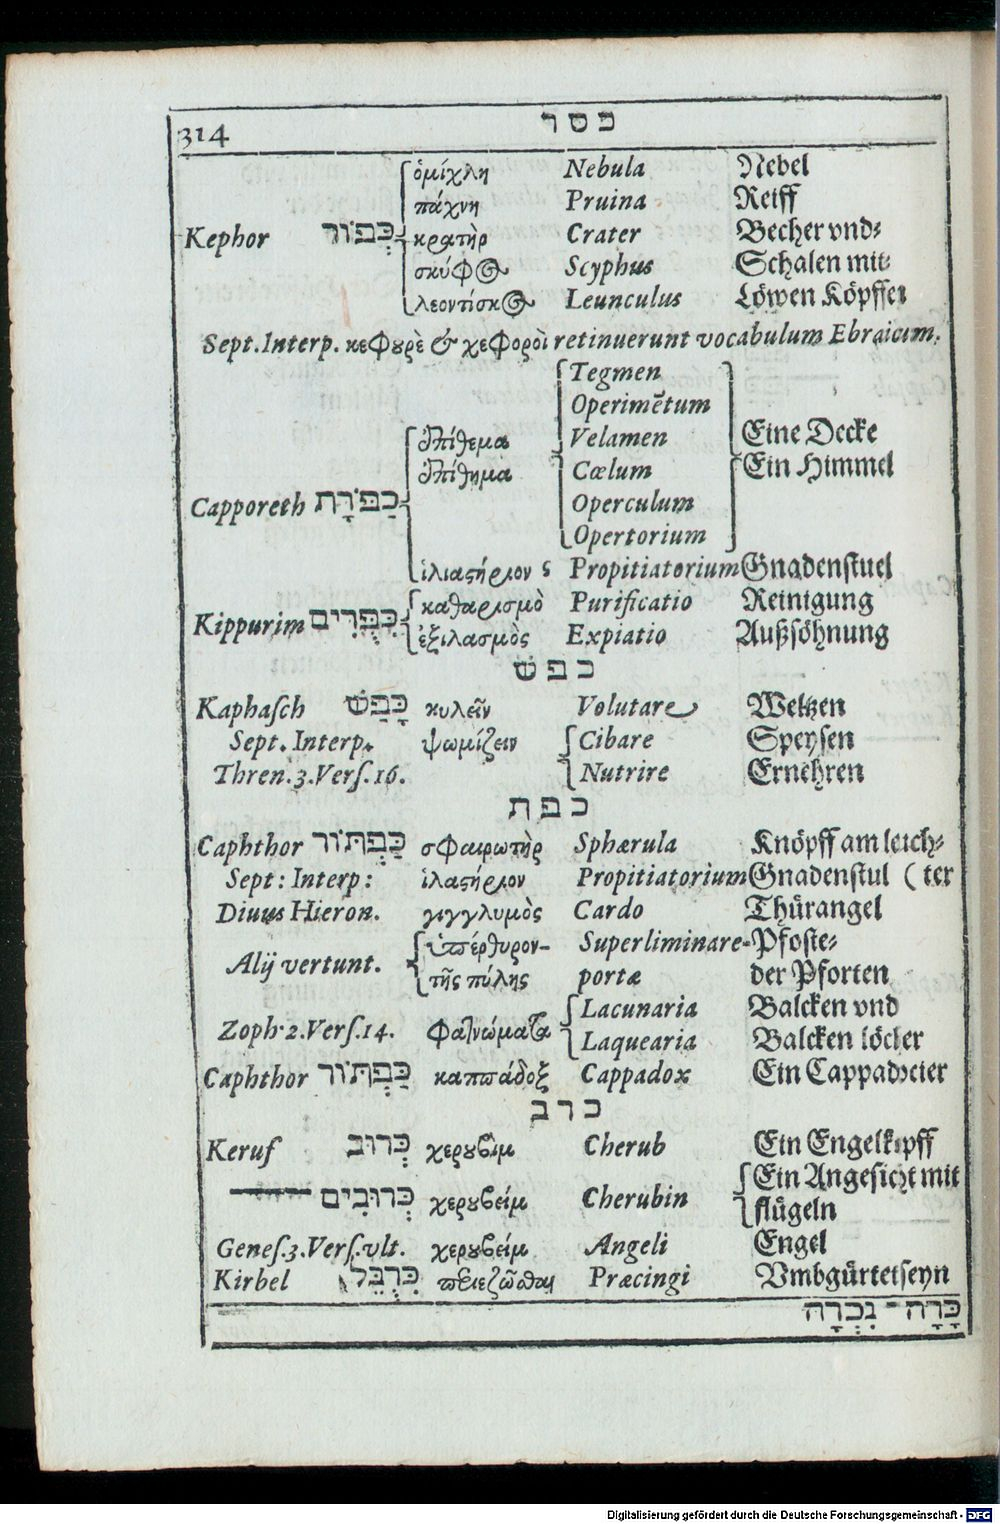 314 כפר
ὁμίχλη Nebula Nebel
πάχνη Pruina Reiff
Kephor כְּפוֹר κρατὴρ Crater Becher vnd-
σκύφος Scyphus Schalen mit-
λεοντίσκος Leunculus Löwen Köpffen
Sept. Interp. κεφουρὲ & χεφοροὶ retinuerunt vocabulum Ebraicum.
Tegmen
Operimētum
ἐπίθεμα Velamen Eine Decke
ἐπίθημα Cœlum Ein Himmel
Capporeth כַּפֹּרֶת Operculum
Opertorium
ἱλιαςήριον ς Propitiatorium Gnadenstuel
καθαρισμὸ Purificatio Reinigung
Kippurim כִּפֻּרִים ἐξιλασμὸς Expiatio Außsöhnung
כפש
Kaphaſch כָּפַשׁ κυλεῖν Volutare Weltzen
Sept. Interp. ψωμίζειν Cibare Speysen
Thren. 3. Verſ. 16. Nutrire Ernehren
כפת
Caphthor כַּפְתּוֹר σφαιρωτὴρ Sphærula Knöpff am leich-
Sept: Interp: ἱλαςήριον Propitiatorium Gnadenstul (ter
Diuus Hieron. γιγγλυμὸς Cardo Thürangel
ὑπέρθυρον- Superliminare- Pfoste-
Alij vertunt. τῆς πύλης portæ der Pforten
Zoph. 2. Verſ. 14. φατνώματα Lacunaria Balcken vnd
Laquearia Balcken löcher
Caphthor כַּפְתּוֹר καππάδοξ Cappadox Ein Cappadocier
כרב
Keruf כְּרוּב χερουβὶμ Cherub Ein Engelkopff
Ein Angesicht mit
כְּרוּבִים χερουβείμ Cherubin flügeln
Geneſ. 3. Verſ. vlt. χερουβείμ Angeli Engel
Kirbel כִּרְבֵּל περιεζῶσθαι Præcingi Vmbgürtet seyn
כָּרָה־ נִכְרָה
Digitalisierung gefördert durch die Deutsche Forschungsgemeinschaft - DFG